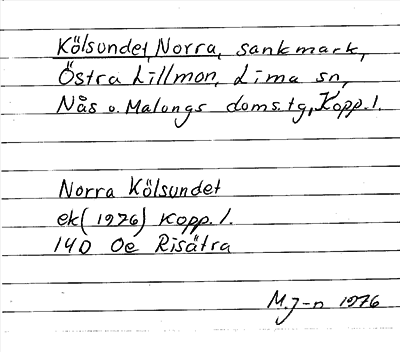 Kölsundet, Norra, sankmark,
Östra Lillmon, Lima sn,
Nås o. Malungs doms.tg, Kopp.l.
Norra Kölsundet
ek (1976) Kopp.l.
14D 0e Risätra
M.J-n 1976